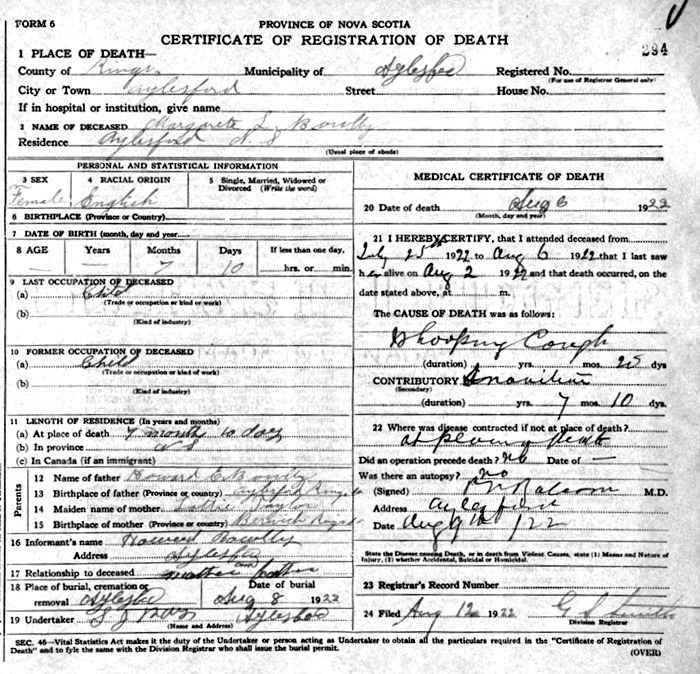 FORM 6
PROVINCE OF NOVA SCOTIA
CERTIFICATE OF REGISTRATION OF DEATH
294
1 PLACE OF DEATH—
County of Kings Municipality of Aylesford Registered No.
(For use of Registrar General only)
City or Town Aylesford Street House No.
If in hospital or institution, give name
2 NAME OF DECEASED Margarete L.
Residence Aylesford N. S
(Usual place of abode)
PERSONAL AND STATISTICAL INFORMATION
3 SEX 4 RACIAL ORIGIN 5 Single, Married, Widowed or Divorced (Write the word)
Female English
6 BIRTHPLACE (Province or Country)
7 DATE OF BIRTH (month, day and year)
8 AGE Years Months Days If less than one day,
— 7 10 hrs. or min.
9 LAST OCCUPATION OF DECEASED
(a) Child
(Trade or occupation or kind of work)
(b)
(Kind of industry)
10 FORMER OCCUPATION OF DECEASED
(a) Child
(Trade or occupation or kind of work)
(b)
(Kind of industry)
11 LENGTH OF RESIDENCE (In years and months)
(a) At place of death 7 months 10 days
(b) In province
(c) In Canada (if an immigrant)
Parents
12 Name of father Howard E.
13 Birthplace of father (Province or country) Aylesford Kings
14 Maiden name of mother Taylor
15 Birthplace of mother (Province or country) Berwick Kings
16 Informant's name Howard
Address Aylesford
17 Relationship to deceased
18 Place of burial, cremation or removal Aylesford Date of burial Aug 8 1922
19 Undertaker Aylesford
(Name and Address)
MEDICAL CERTIFICATE OF DEATH
20 Date of death Aug 6 1922
(Month, day and year)
21 I HEREBY CERTIFY, that I attended deceased from
July 25th 1922 to Aug 6 1922 that I last saw
her alive on Aug 2 1922 and that death occurred, on the
date stated above, at m.
The CAUSE OF DEATH was as follows:
Whooping Cough
(duration) yrs. mos. 25 dys
CONTRIBUTORY Inanition
(Secondary)
(duration) yrs. 7 mos. 10 dys.
22 Where was disease contracted if not at place of death?
at place of death
Did an operation precede death? No Date of —
Was there an autopsy? No
(Signed) M.D.
Address Aylesford
Date Aug 9th /22
State the Disease causing Death, or in death from Violent Causes, state (1) Means and Nature of Injury, (2) whether Accidental, Suicidal or Homicidal.
23 Registrar's Record Number
24 Filed Aug 12 1922 G S Smith
Division Registrar
SEC. 46—Vital Statistics Act makes it the duty of the Undertaker or person acting as Undertaker to obtain all the particulars required in the "Certificate of Registration of
Death" and to fyle the same with the Division Registrar who shall issue the burial permit. (OVER)